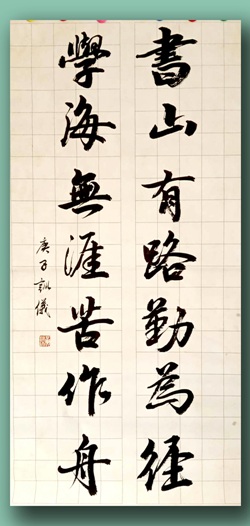 書山有路勤為徑
學海無涯苦作舟
庚子